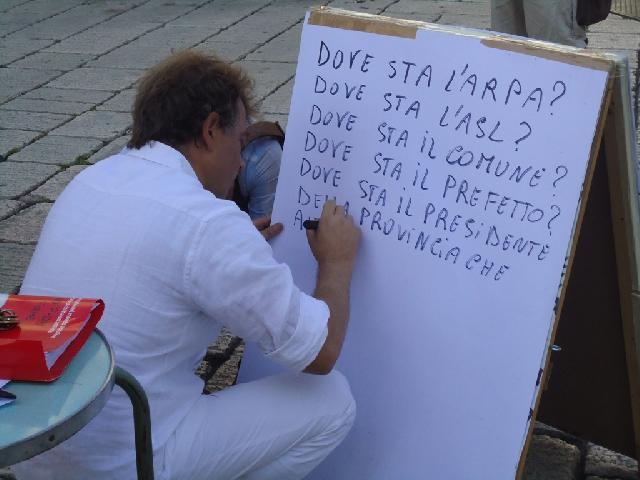 DOVE STA L'ARPA?
DOVE STA L'ASL?
DOVE STA IL COMUNE?
DOVE STA IL PREFETTO?
DOVE STA IL PRESIDENTE
DELLA PROVINCIA CHE